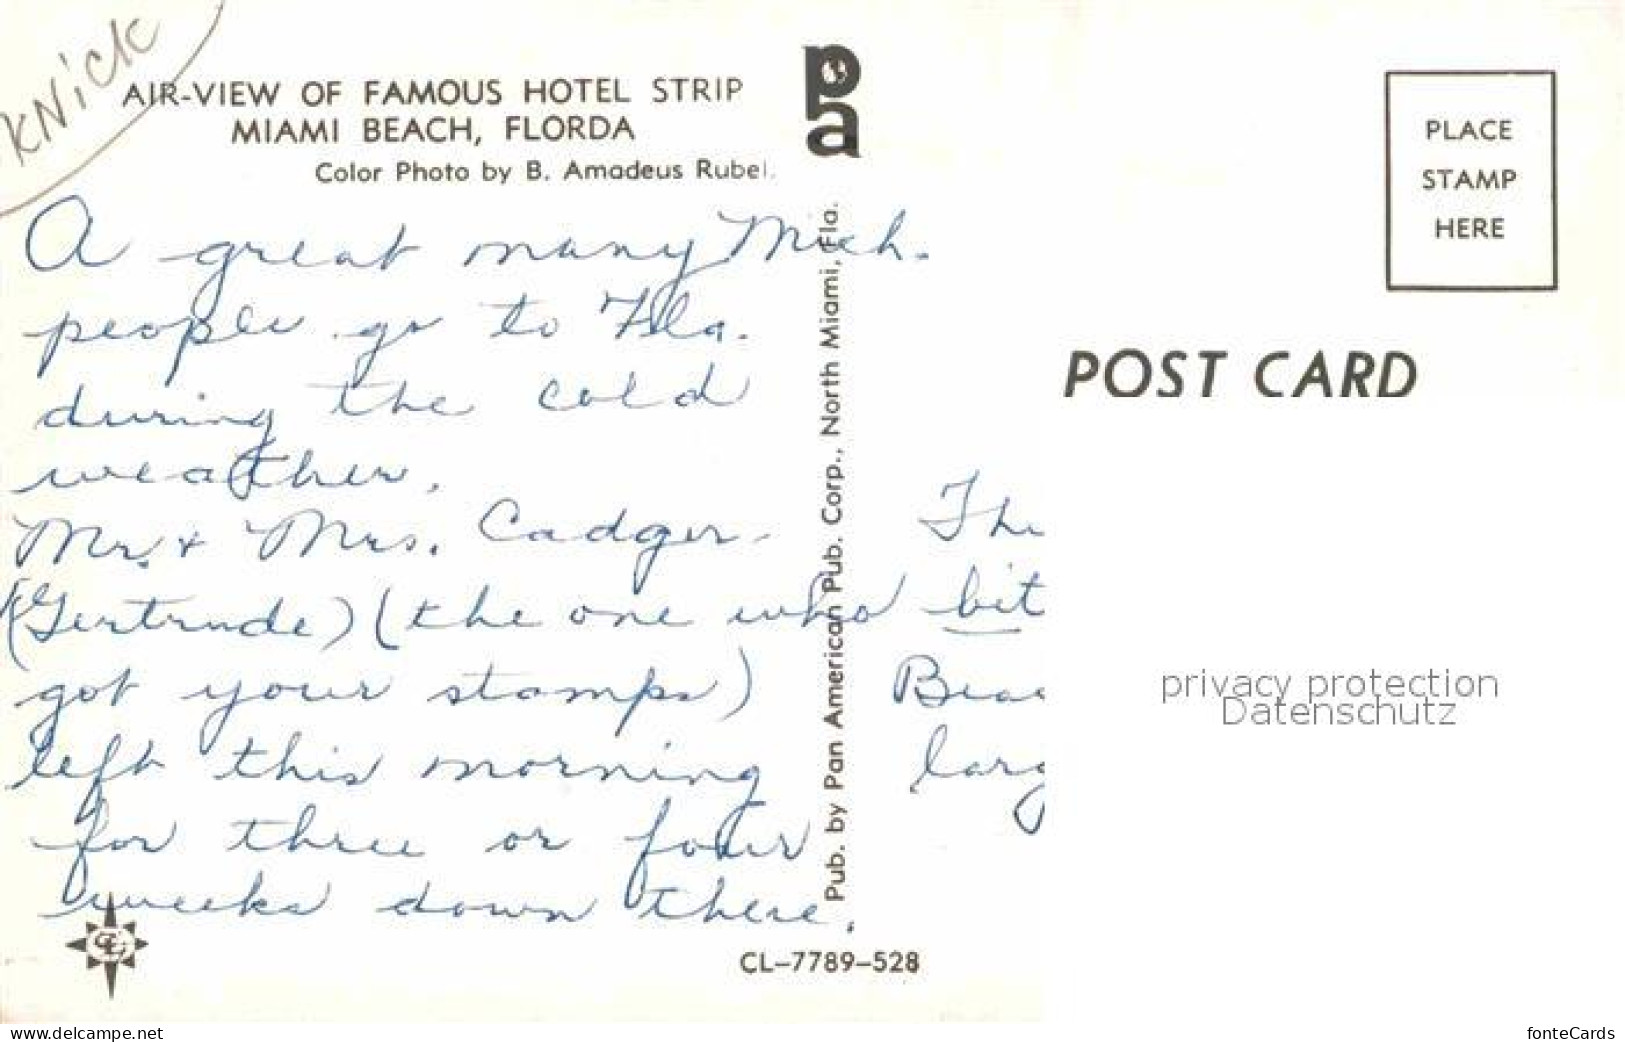 KNick
AIR-VIEW OF FAMOUS HOTEL STRIP
MIAMI BEACH, FLORDA
Color Photo by B. Amadeus Rubel.
A great many Mich.
people go to Fla.
during the cold
weather.
Mr. & Mrs. Cadger
(Gertrude) (the one who
got your stamps)
left this morning
for three or four
weeks down there.
CL-7789-528
pa
Pub. by Pan American Pub. Corp., North Miami, Fla.
PLACE
STAMP
HERE
POST CARD
The
bit
Beac
larg
privacy protection
Datenschutz
www.delcampe.net
fonteCards